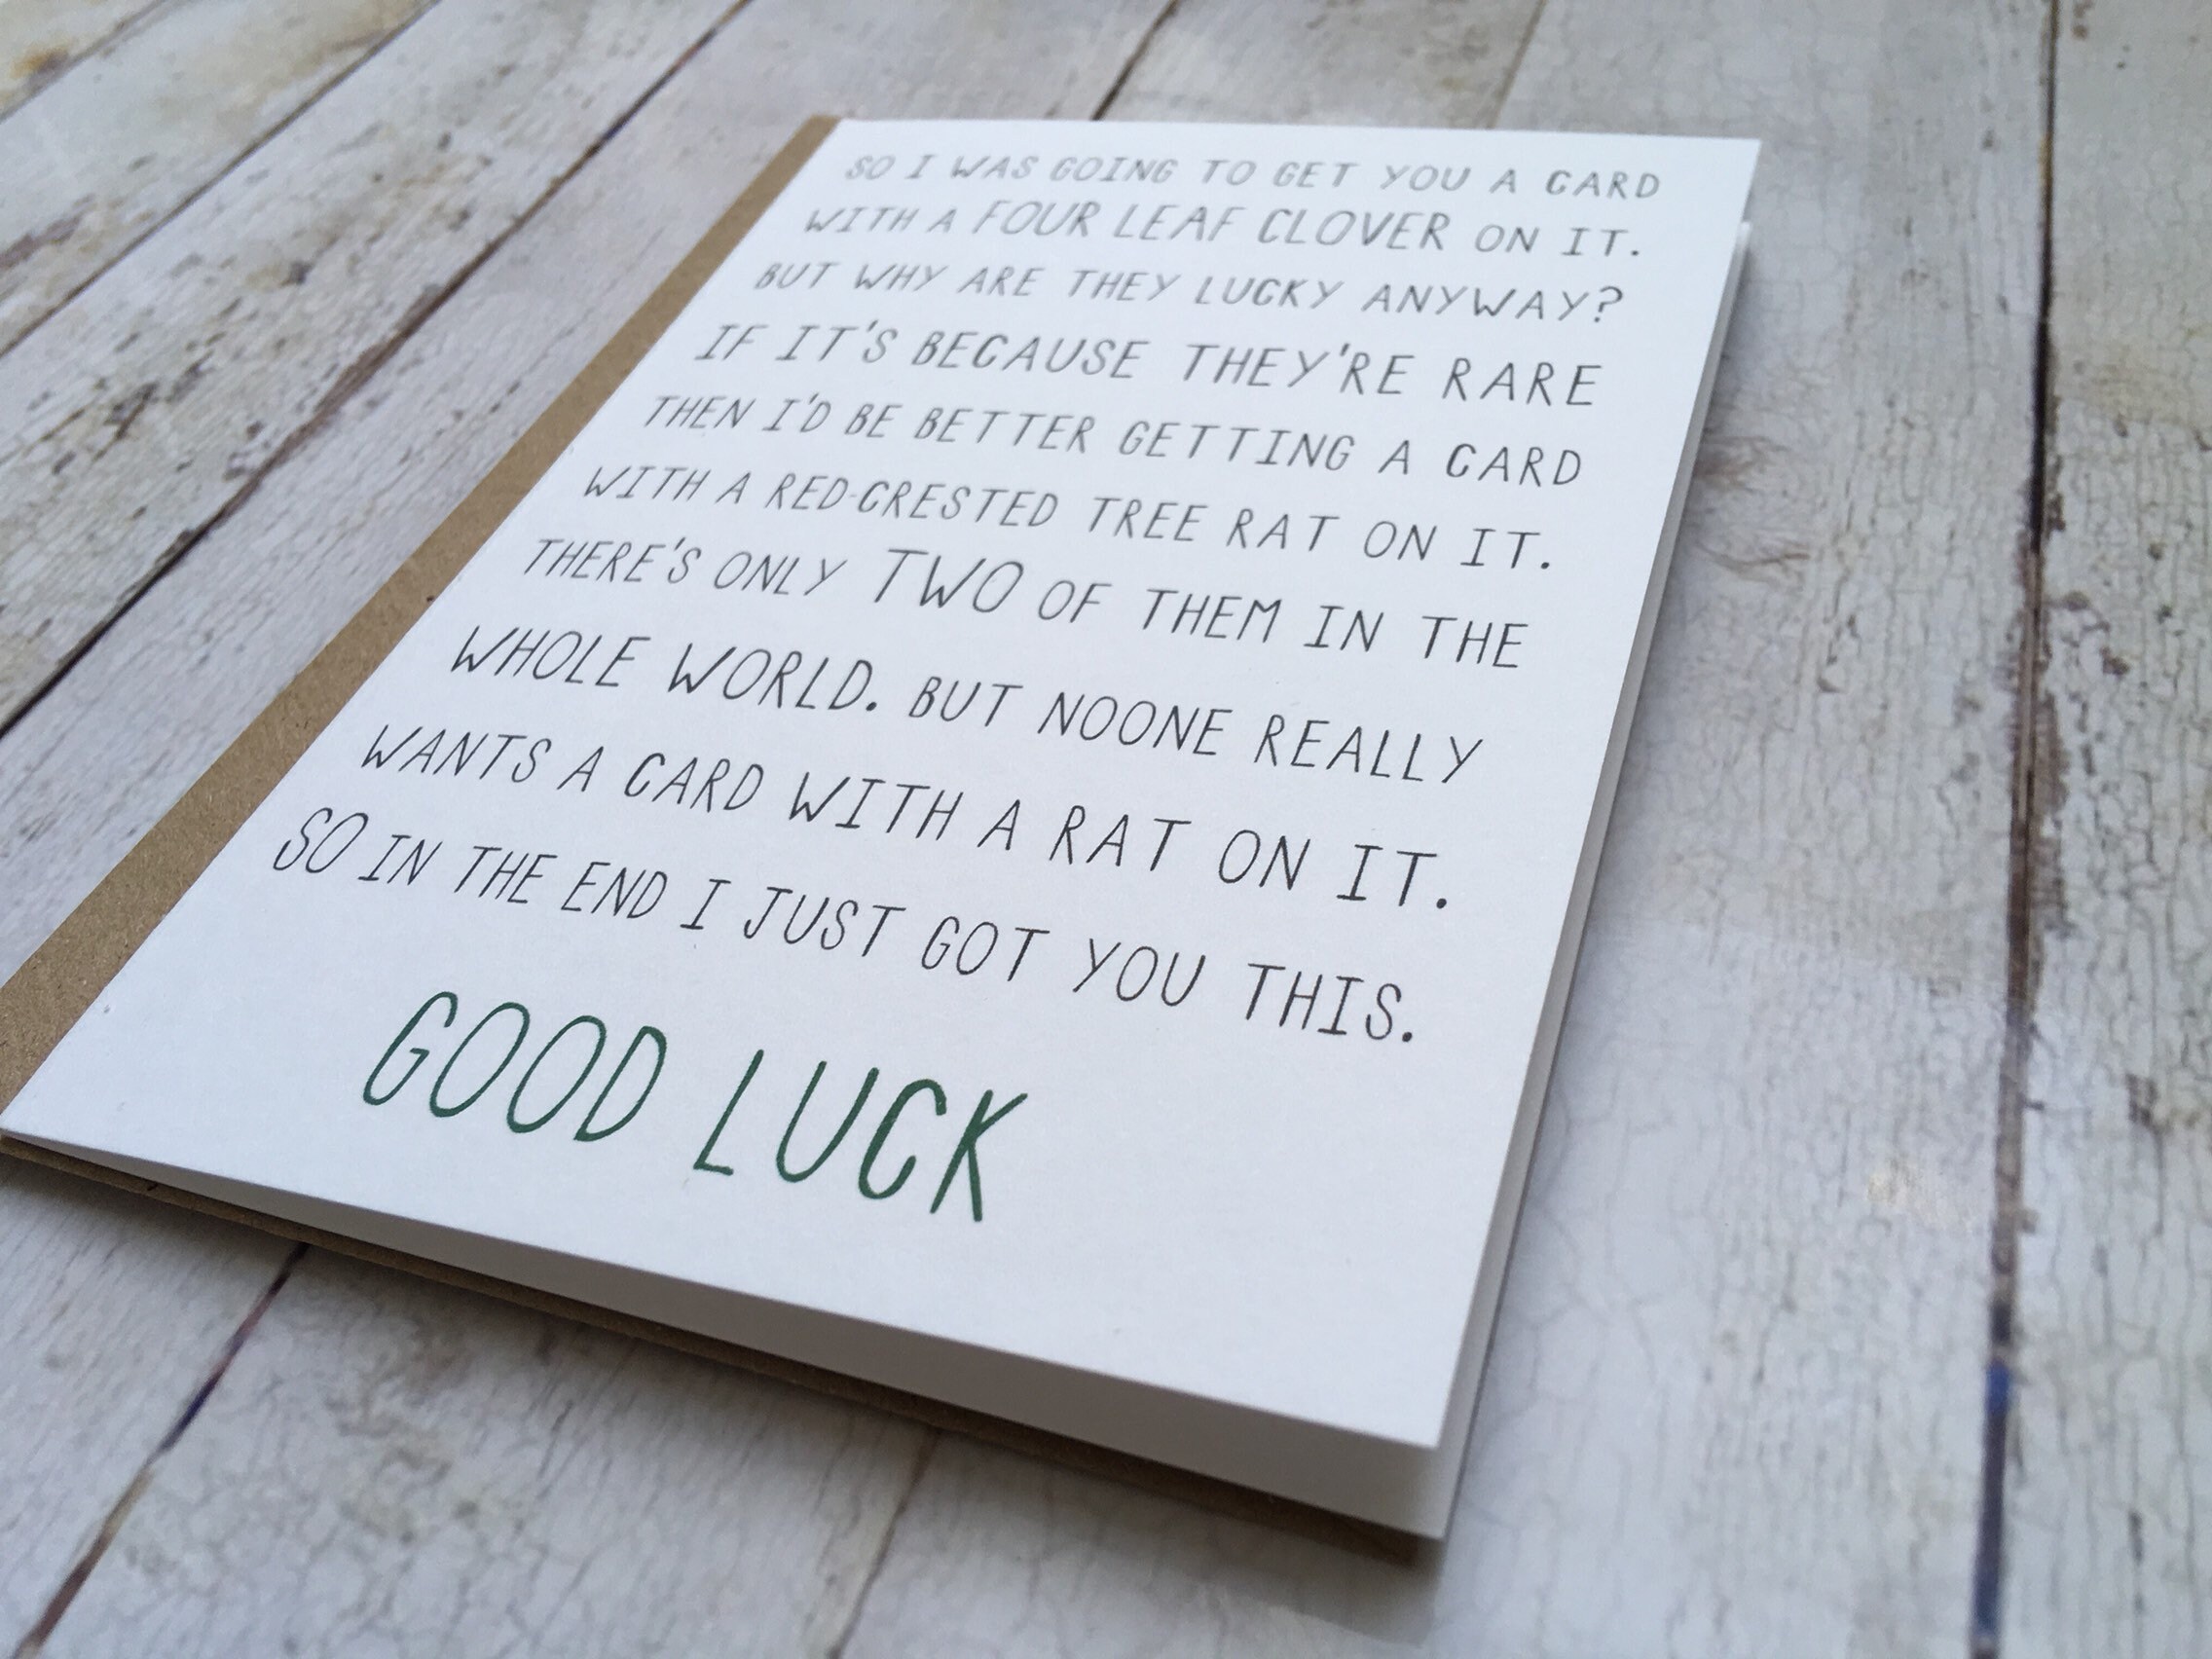 SO I WAS GOING TO GET YOU A CARD
WITH A FOUR LEAF CLOVER ON IT.
BUT WHY ARE THEY LUCKY ANYWAY?
IF IT'S BECAUSE THEY'RE RARE
THEN I'D BE BETTER GETTING A CARD
WITH A RED-CRESTED TREE RAT ON IT.
THERE'S ONLY TWO OF THEM IN THE
WHOLE WORLD. BUT NOONE REALLY
WANTS A CARD WITH A RAT ON IT.
SO IN THE END I JUST GOT YOU THIS.
GOOD LUCK